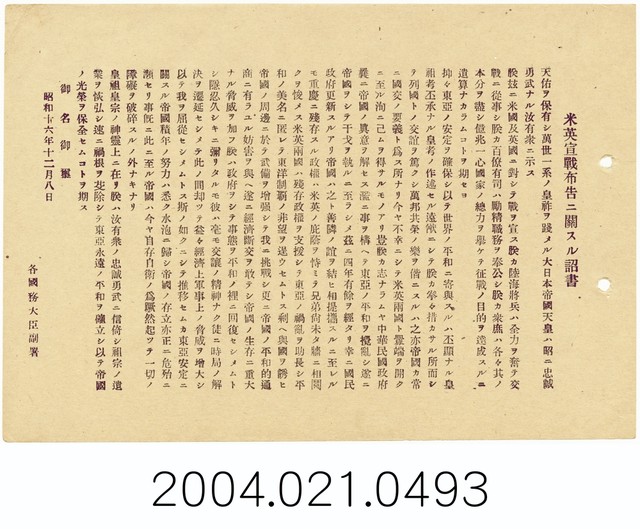 米英宣戰布告ニ關スル詔書
天佑ヲ保有シ萬世一系ノ皇祚ヲ踐メル大日本帝國天皇ハ昭ニ忠誠
勇武ナル汝有衆ニ示ス
朕茲ニ米國及英國ニ對シテ戰ヲ宣ス朕カ陸海將兵ハ全力ヲ奮テ交
戰ニ從事シ朕カ百僚有司ハ勵精職務ヲ奉公シ朕カ衆庶ハ各々其ノ
本分ヲ盡シ億兆一心國家ノ總力ヲ擧ケテ征戰ノ目的ヲ達成スルニ
遺算ナカラムコトヲ期セヨ
抑々東亞ノ安定ヲ確保シ以テ世界ノ平和ニ寄與スルハ丕顯ナル皇
祖考丕承ナル皇考ノ作述セル遠猷ニシテ朕カ拳々措カサル所而シ
テ列國トノ交誼ヲ篤クシ萬邦共榮ノ樂ヲ偕ニスルハ之亦帝國カ常
ニ國交ノ要義ト爲ス所ナリ今ヤ不幸ニシテ米英兩國ト釁端ヲ開ク
ニ至ル洵ニ已ムヲ得サルモノアリ豈朕カ志ナラムヤ中華民國政府
曩ニ帝國ノ眞意ヲ解セス濫ニ事ヲ構ヘテ東亞ノ平和ヲ攪亂シ遂ニ
帝國ヲシテ干戈ヲ執ルニ至ラシメ茲ニ四年有餘ヲ經タリ幸ニ國民
政府更新スルアリ帝國ハ之ト善隣ノ誼ヲ結ヒ相提攜スルニ至レル
モ重慶ニ殘存スル政權ハ米英ノ庇蔭ヲ恃ミテ兄弟尚未タ牆ニ相鬩
クヲ悛メス米英兩國ハ殘存政權ヲ支援シテ東亞ノ禍亂ヲ助長シ平
和ノ美名ニ匿レテ東洋制覇ノ非望ヲ逞ウセムトス剩ヘ與國ヲ誘ヒ
帝國ノ周邊ニ於テ武備ヲ增强シテ我ニ挑戰シ更ニ帝國ノ平和的通
商ニ有ラユル妨害ヲ與ヘ遂ニ經濟斷交ヲ敢テシ帝國ノ生存ニ重大
ナル脅威ヲ加フ朕ハ政府ヲシテ事態ヲ平和ノ裡ニ回復セシメムト
シ隱忍久シキニ彌リタルモ彼ハ毫モ交讓ノ精神ナク徒ニ時局ノ解
決ヲ遷延セシメテ此ノ間却ツテ益々經濟上軍事上ノ脅威ヲ增大シ
以テ我ヲ屈從セシメムトス斯ノ如クニシテ推移セムカ東亞安定ニ
關スル帝國積年ノ努力ハ悉ク水泡ニ歸シ帝國ノ存立亦正ニ危殆ニ
瀕セリ事旣ニ此ニ至ル帝國ハ今ヤ自存自衞ノ爲蹶然起ツテ一切ノ
障礙ヲ破碎スルノ外ナキナリ
皇祖皇宗ノ神靈上ニ在リ朕ハ汝有衆ノ忠誠勇武ニ信倚シ祖宗ノ遺
業ヲ恢弘シ速ニ禍根ヲ芟除シテ東亞永遠ノ平和ヲ確立シ以テ帝國
ノ光榮ヲ保全セムコトヲ期ス
御名御璽
昭和十六年十二月八日
各國務大臣副署
2004.021.0493